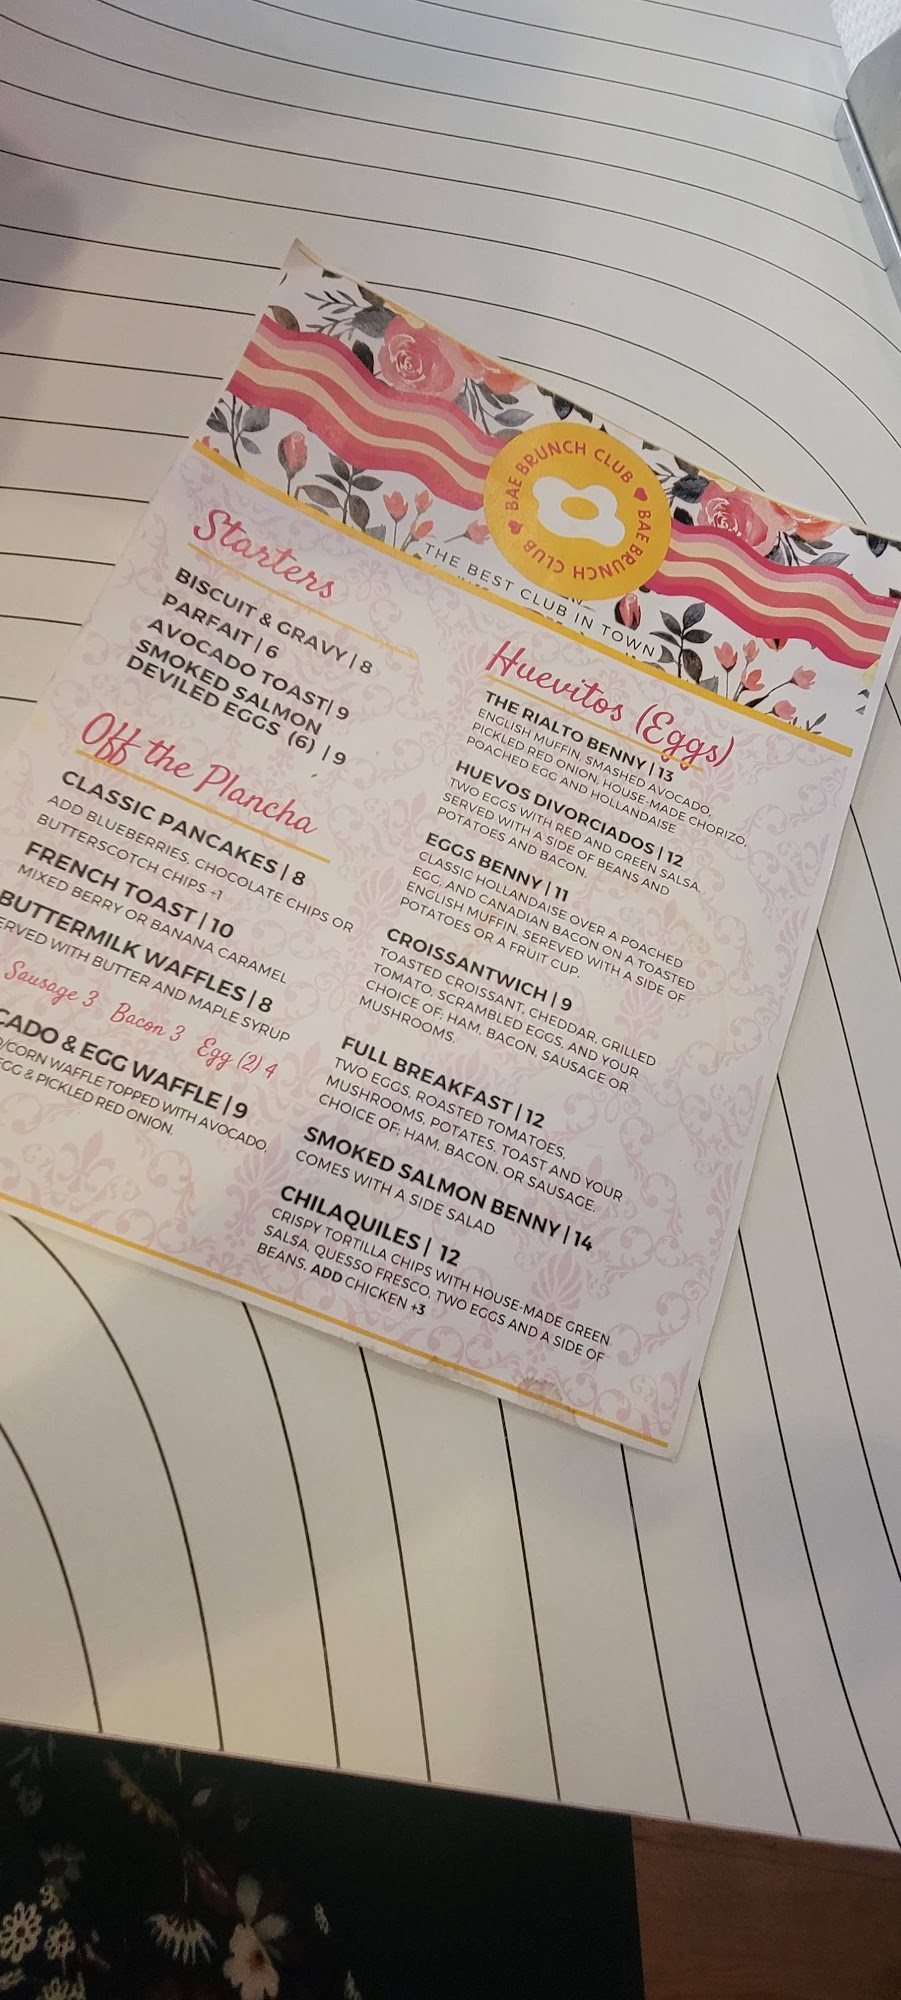 BAE BRUNCH CLUB
BAE BRUNCH CLUB
THE BEST CLUB IN TOWN
Starters
BISCUIT & GRAVY | 8
PARFAIT | 6
AVOCADO TOAST| 9
SMOKED SALMON
DEVILED EGGS (6) | 9
Off the Plancha
CLASSIC PANCAKES | 8
ADD BLUEBERRIES, CHOCOLATE CHIPS OR
BUTTERSCOTCH CHIPS +1
FRENCH TOAST | 10
MIXED BERRY OR BANANA CARAMEL
BUTTERMILK WAFFLES | 8
ERVED WITH BUTTER AND MAPLE SYRUP
Sausage 3 Bacon 3 Egg (2) 4
CADO & EGG WAFFLE | 9
O/CORN WAFFLE TOPPED WITH AVOCADO,
EGG & PICKLED RED ONION.
Huevitos (Eggs)
THE RIALTO BENNY | 13
ENGLISH MUFFIN, SMASHED AVOCADO,
PICKLED RED ONION, HOUSE-MADE CHORIZO,
POACHED EGG AND HOLLANDAISE
HUEVOS DIVORCIADOS | 12
TWO EGGS WITH RED AND GREEN SALSA.
SERVED WITH A SIDE OF BEANS AND
POTATOES AND BACON.
EGGS BENNY | 11
CLASSIC HOLLANDAISE OVER A POACHED
EGG, AND CANADIAN BACON ON A TOASTED
ENGLISH MUFFIN. SEREVED WITH A SIDE OF
POTATOES OR A FRUIT CUP.
CROISSANTWICH | 9
TOASTED CROISSANT, CHEDDAR, GRILLED
TOMATO, SCRAMBLED EGGS, AND YOUR
CHOICE OF; HAM, BACON, SAUSAGE OR
MUSHROOMS.
FULL BREAKFAST | 12
TWO EGGS, ROASTED TOMATOES,
MUSHROOMS, POTATES, TOAST AND YOUR
CHOICE OF; HAM, BACON, OR SAUSAGE.
SMOKED SALMON BENNY | 14
COMES WITH A SIDE SALAD
CHILAQUILES | 12
CRISPY TORTILLA CHIPS WITH HOUSE-MADE GREEN
SALSA, QUESSO FRESCO, TWO EGGS AND A SIDE OF
BEANS, ADD CHICKEN +3